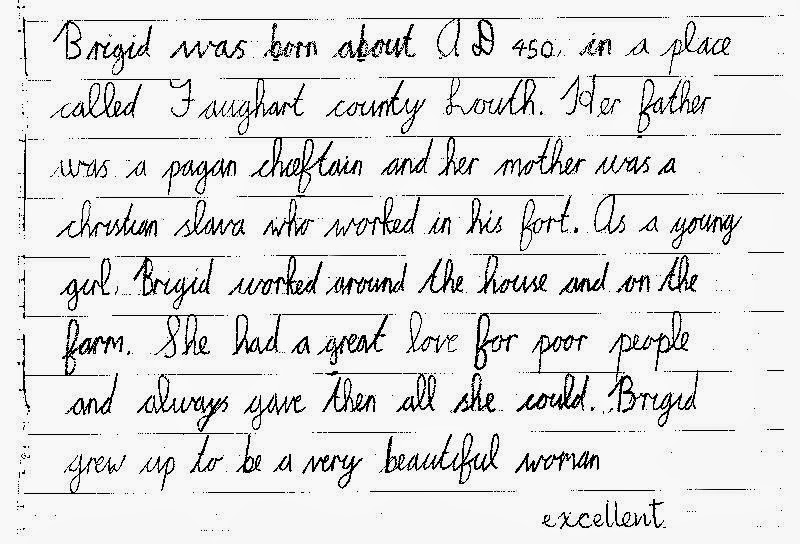 Brigid was born about A D 450, in a place
called Faughart county Louth. Her father
was a pagan chieftain and her mother was a
christian slava who worked in his fort. As a young
girl, Brigid worked around the house and on the
farm. She had a great love for poor people
and always gave then all she could. Brigid
grew up to be a very beautiful woman
excellent